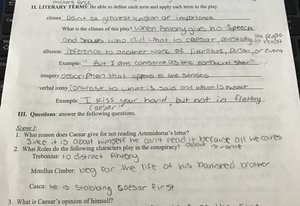 II. LITERARY TERMS. Be able to define each term and apply each term to the play.
climax point of greatest tension or importance
What is the climax of this play? when Antony gives his speech
and shows who did what to caesar, convincing the people
allusion: reference to another work of literature, person, or event
Example: "But I am constant as the northern star"
imagery description that appeals to the senses
verbal irony contrast to what is said and what is meant
Example: I kiss your hand, but not in flattery
caesar
III. Questions: answer the following questions.
Scene 1:
1. What reason does Caesar give for not reading Artemidorus's letter?
Since it is about himself he can't read it because all he cares
about is rome
2. What Roles do the following characters play in the conspiracy?
Trebonius: to distract Antony
Metellus Cimber: beg for the life of his banished brother
Casca: he is stabbing caesar first
3. What is Caesar's opinion of himself?